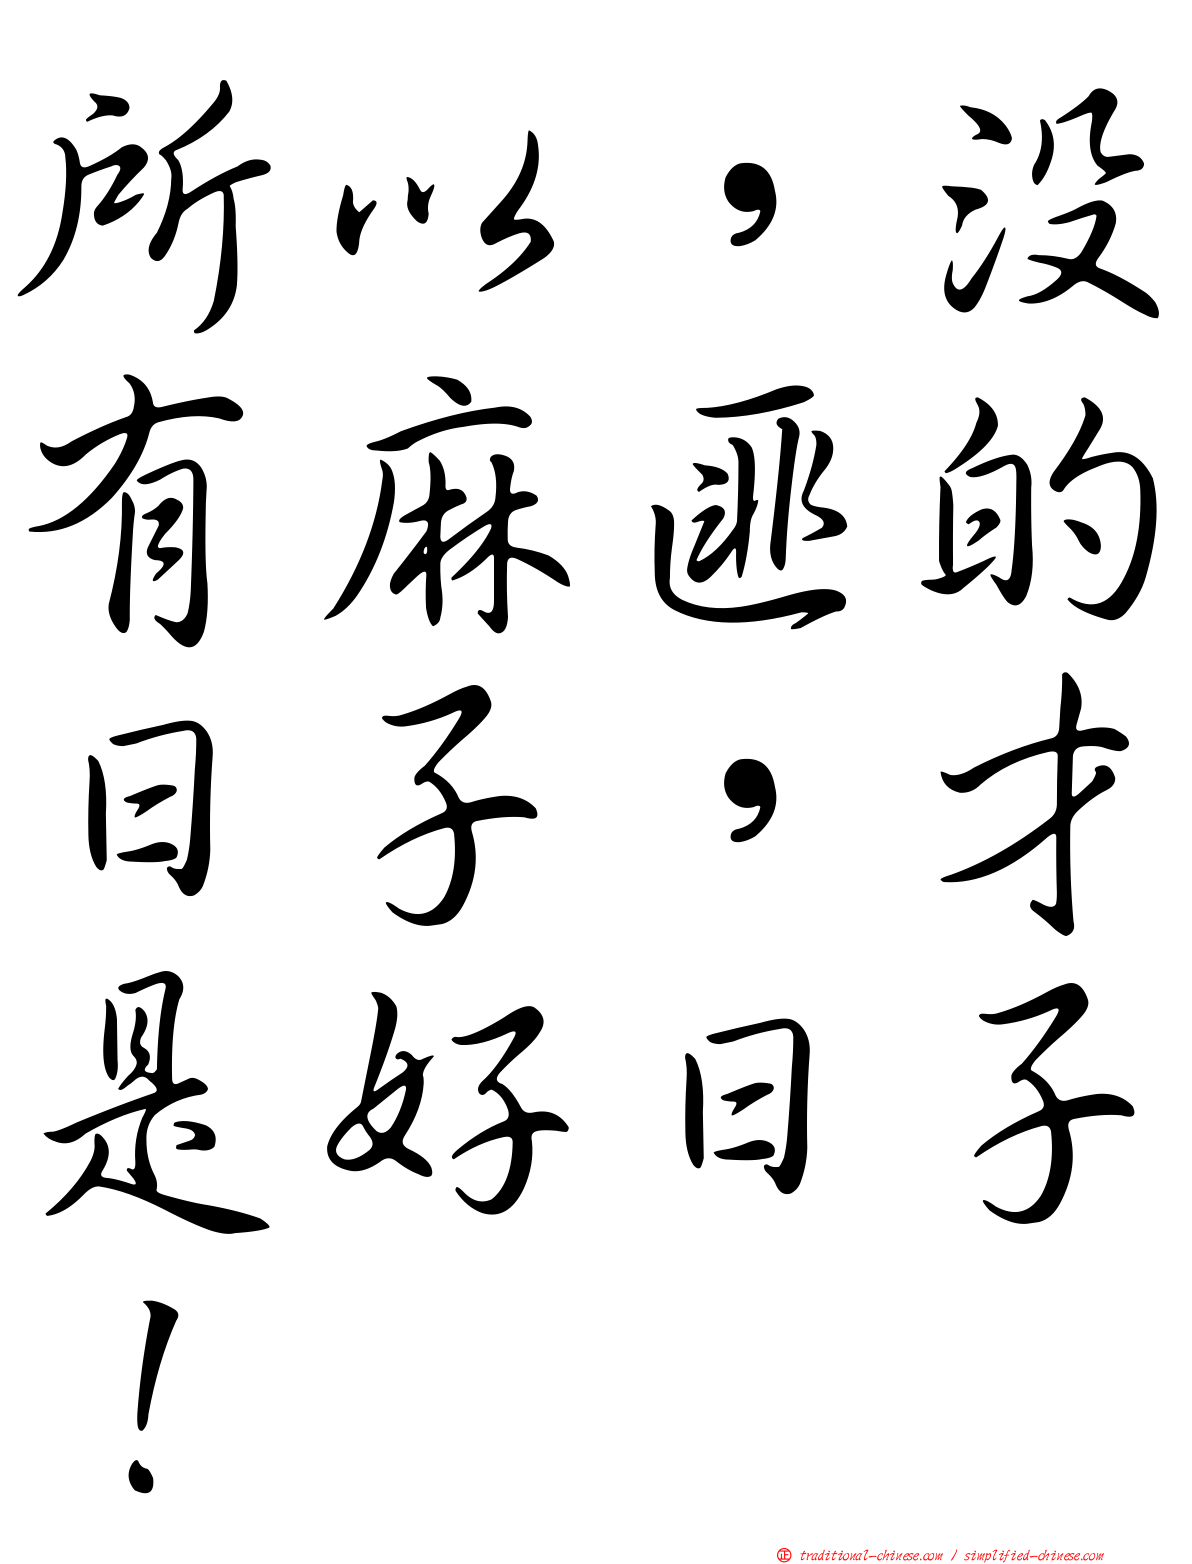 所以，没
有麻匪的
日子，才
是好日子
！
正 traditional-chinese.com / simplified-chinese.com